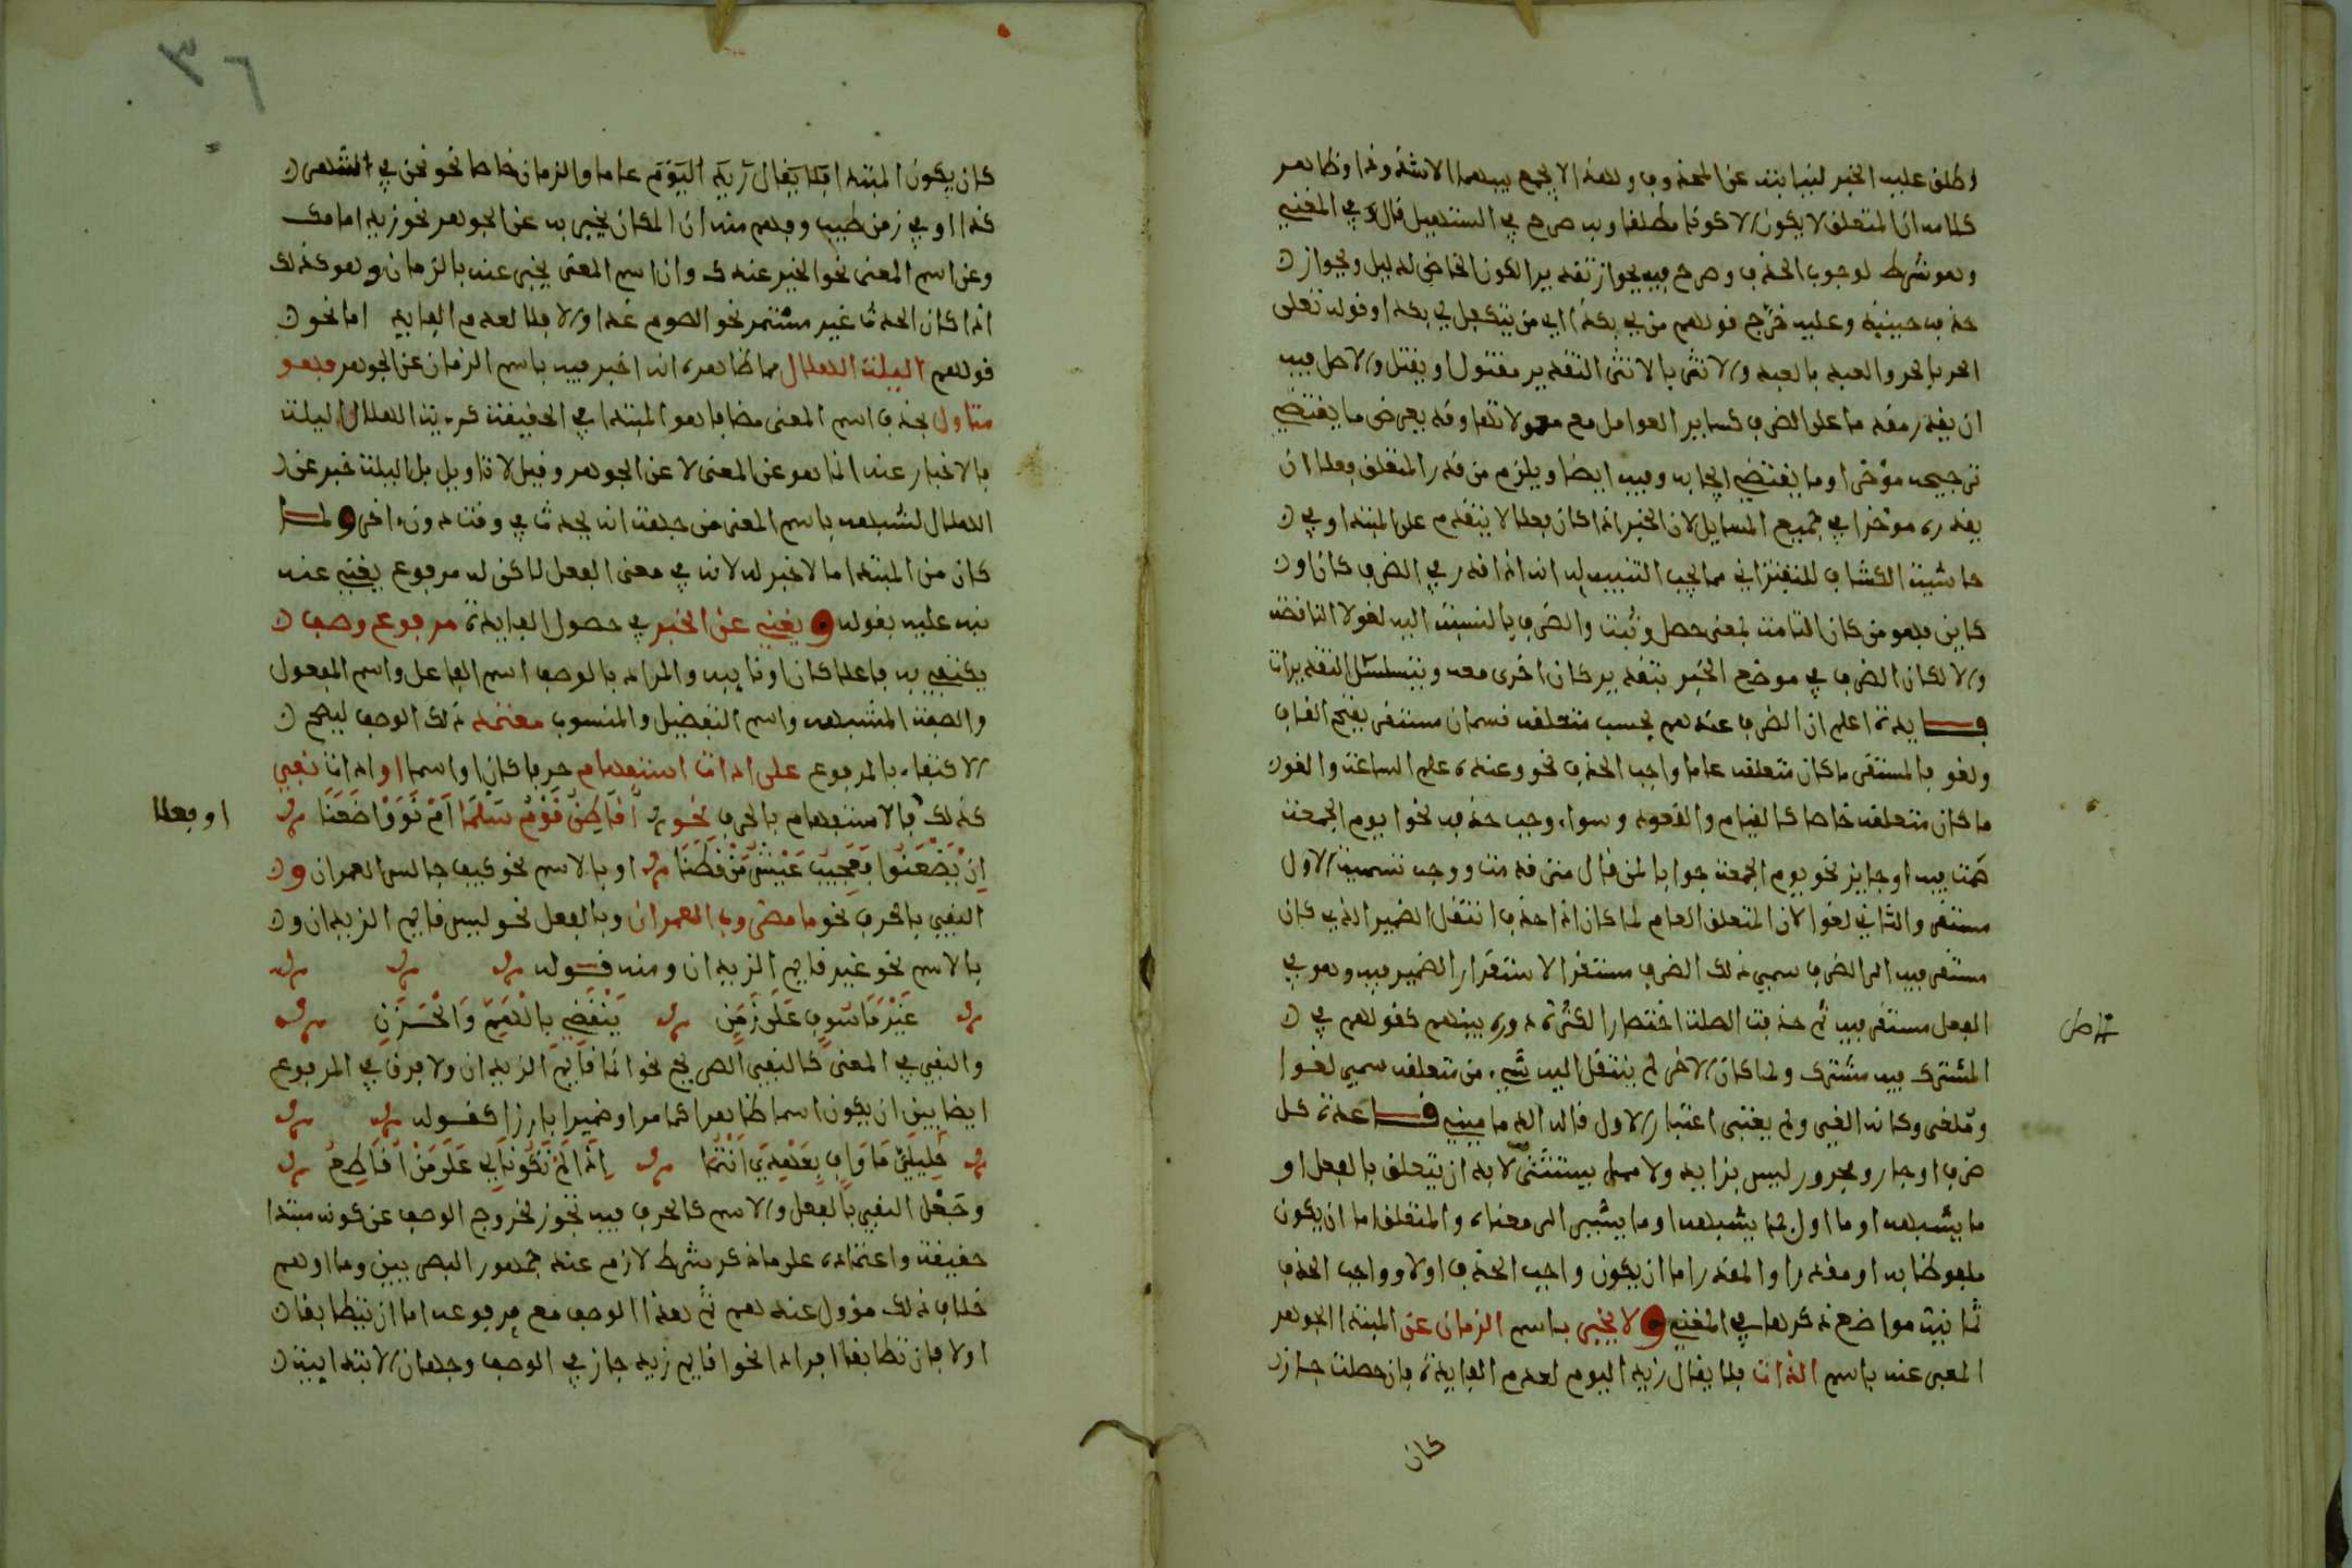 واطلق عليه الخبر لنيابته عن المحذوف ولهذا لا يجمع بينهما الا شذوذا وظاهر
كلامه ان المتعلق لا يكون الا كونا مطلقا وبه صرح في التسهيل قال في المغني
وهو شرط لوجوب الحذف وصرح فيه بجواز تقدير الكون الخاص لدليل وبجواز
حذفه حينئذ وعليه خرج قولهم من لي بكذا اي من يتكفل لي بكذا وقوله تعلى
الحر بالحر والعبد بالعبد والانثى بالانثى التقدير مقتول او يقتل والاصل فيه
ان يقدر مقدما على الظرف كساير العوامل مع معمولاتها وقد يعرض ما يقتضي
ترجيحه مؤخرا وما يقتضي ايجابه وفيه ايضا ويلزم من قدر المتعلق فعلا ان
يقدره مؤخرا في جميع المسايل لان الخبر اذا كان فعلا لا يتقدم على المبتدا وفي
حاشية الكشاف للتفتزاني مما يجب التنبيه له انه اذا قدر في الظرف كان او
كاين فهو من كان التامة بمعنى حصل وثبت والظرف بالنسبة اليه لغو لا الناقصة
والا لكان الظرف في موضع الخبر بتقدير كان اخرى معه ويتسلسل التقديرات
فايدة اعلم ان الظرف عندهم بحسب متعلقه قسمان مستقر بفتح القاف
ولغو فالمستقر ما كان متعلقه عاما واجب الحذف نحو وعنده علم الساعة واللغو
ما كان متعلقه خاصا كالقيام والقعود وسواء وجب حذفه نحو يوم الجمعة
صمت فيه او جايز نحو يوم الجمعة جوابا لمن قال متى قدمت ووجه تسمية الاول
مستقر والثاني لغوا لان المتعلق العام لما كان اذا حذف انتقل الضمير الذي كان
مستقر فيه الى الظرف سمي ذلك الظرف مستقرا لاستقرار الضمير فيه وهو في
الفعل مستقر فيه ثم حذفت الصلة اختصارا لكثرة دوره بينهم كقولهم في
المشترك فيه مشترك ولما كان الاخر لم ينتقل اليه شيء من متعلقه سمي لغوا
وملغى وكانه الغي ولم يعتبر اعتبار الاول قاله الدماميني قاعدة كل
ظرف او جار ومجرور ليس بزايد ولا مما يستثنى لا بد ان يتعلق بالفعل او
ما يشبهه او ما اول بما يشبهه او ما يشير الى معناه والمتعلق اما ان يكون
ملفوظا به او مقدرا والمقدر اما ان يكون واجب الحذف اولا وواجب الحذف
ثمانية مواضع ذكرها في المغني ولا يخبر باسم الزمان عن المبتدا الجوهر
المعبر عنه باسم الذات فلا يقال زيد اليوم لعدم الفايدة فان حصلت جاز
كان
كان يكون المبتدا فلا يقال زيد اليوم عاما والزمان خاصا نحو نحن في الشهر
كذا او في زمن طيب وفهم منه ان المكان يخبر به عن الجوهر نحو زيد امامك
وعن اسم المعنى نحو الخير عندك وان اسم المعنى يخبر عنه بالزمان وهو كذلك
اذا كان الحدث غير مستمر نحو الصوم غدا والا فلا لعدم الفايدة اما نحو
قولهم الليلة الهلال مما ظاهره انه اخبر فيه باسم الزمان عن الجوهر فهو
متاول بحذف اسم المعنى مضافا هو المبتدا في الحقيقة كرءية الهلال الليلة
فالاخبار عنه انما هو عن المعنى لا عن الجوهر وقيل لا تاويل بل الليلة خبر عن
الهلال لشبهه باسم المعنى من جهة انه يحدث في وقت دون اخر ولما
كان من المبتدا ما لا خبر له لانه في معنى الفعل لاكن له مرفوع يغني عنه
نبه عليه بقوله ويغني عن الخبر في حصول الفايدة مرفوع وصف
يكتفي به فاعلا كان او نايبه والمراد بالوصف اسم الفاعل واسم المفعول
والصفة المشبهة واسم التفضيل والمنسوب معتمد ذلك الوصف ليصح
الاكتفاء بالمرفوع على اداة استفهام حرفا كان او اسما او اداة نفي
او فعلا
كذلك فالاستفهام بالحرف نحو اقاطن قوم سلمى ام نووا ضعنا
ان يضعنوا فعجيب عيش من قطنا او بالاسم نحو كيف جالس العمران و
النفي بالحرف نحو ما مضروب العمران وبالفعل نحو ليس قايم الزيدان و
بالاسم نحو غير قايم الزيدان ومنه قوله
غير ماسوف على زمن ينقضي بالهم والحزن
والنفي في المعنى كالنفي الصريح نحو انما قايم الزيدان ولا فرق في المرفوع
ايضا بين ان يكون اسما ظاهرا كما مر او ضميرا بارزا كقوله
خليلي ما واف بعهدي انتما اذا لم تكونا لي على من اقاطع
وجعل النفي بالفعل والاسم كالحرف فيه تجوز لخروج الوصف عن كونه مبتدا
حقيقة واعتماده على ما ذكر شرط لازم عند جمهور البصريين وما اوهم
خلاف ذلك مؤول عندهم ثم هذا الوصف مع مرفوعه اما ان يتطابقا
اولا فان تطابقا افرادا نحو اقايم زيد جاز في الوصف وجهان الابتدايية